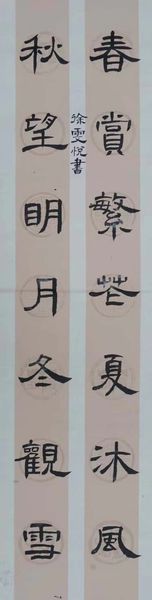 春赏繁芒夏沐風
秋望明月冬觀雪
徐雯悦書